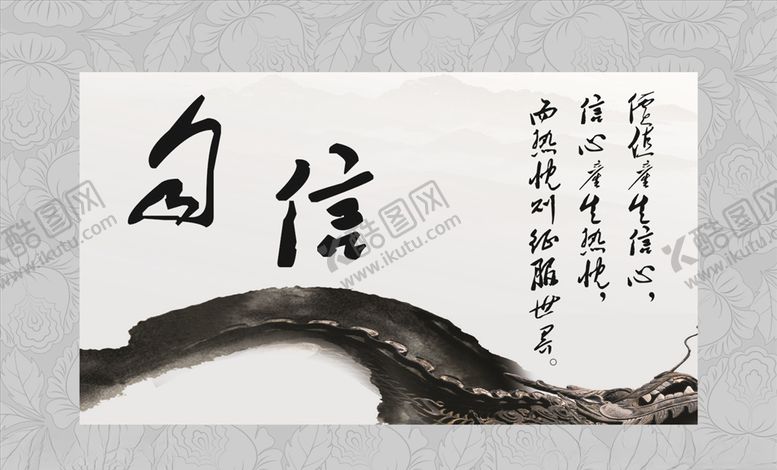 自信
價值產生信心，
信心產生热忱，
而热忱则征服世界。
酷图网
www.ikutu.com
酷图网
www.ikutu.com
酷图网
www.ikutu.com